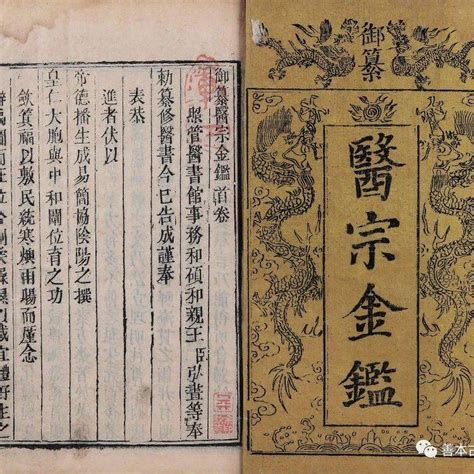 御纂
醫宗金鑑
御纂醫宗金鑑首卷
照管醫書館事務和碩和親王臣弘晝等奉
勅纂修醫書今已告成謹奉
表恭
進者伏以
帝德播生成易簡協陰陽之撰
皇仁大胞與中和闡位育之功
斂箕福以敷民統寒燠雨暘而厪念
善本古